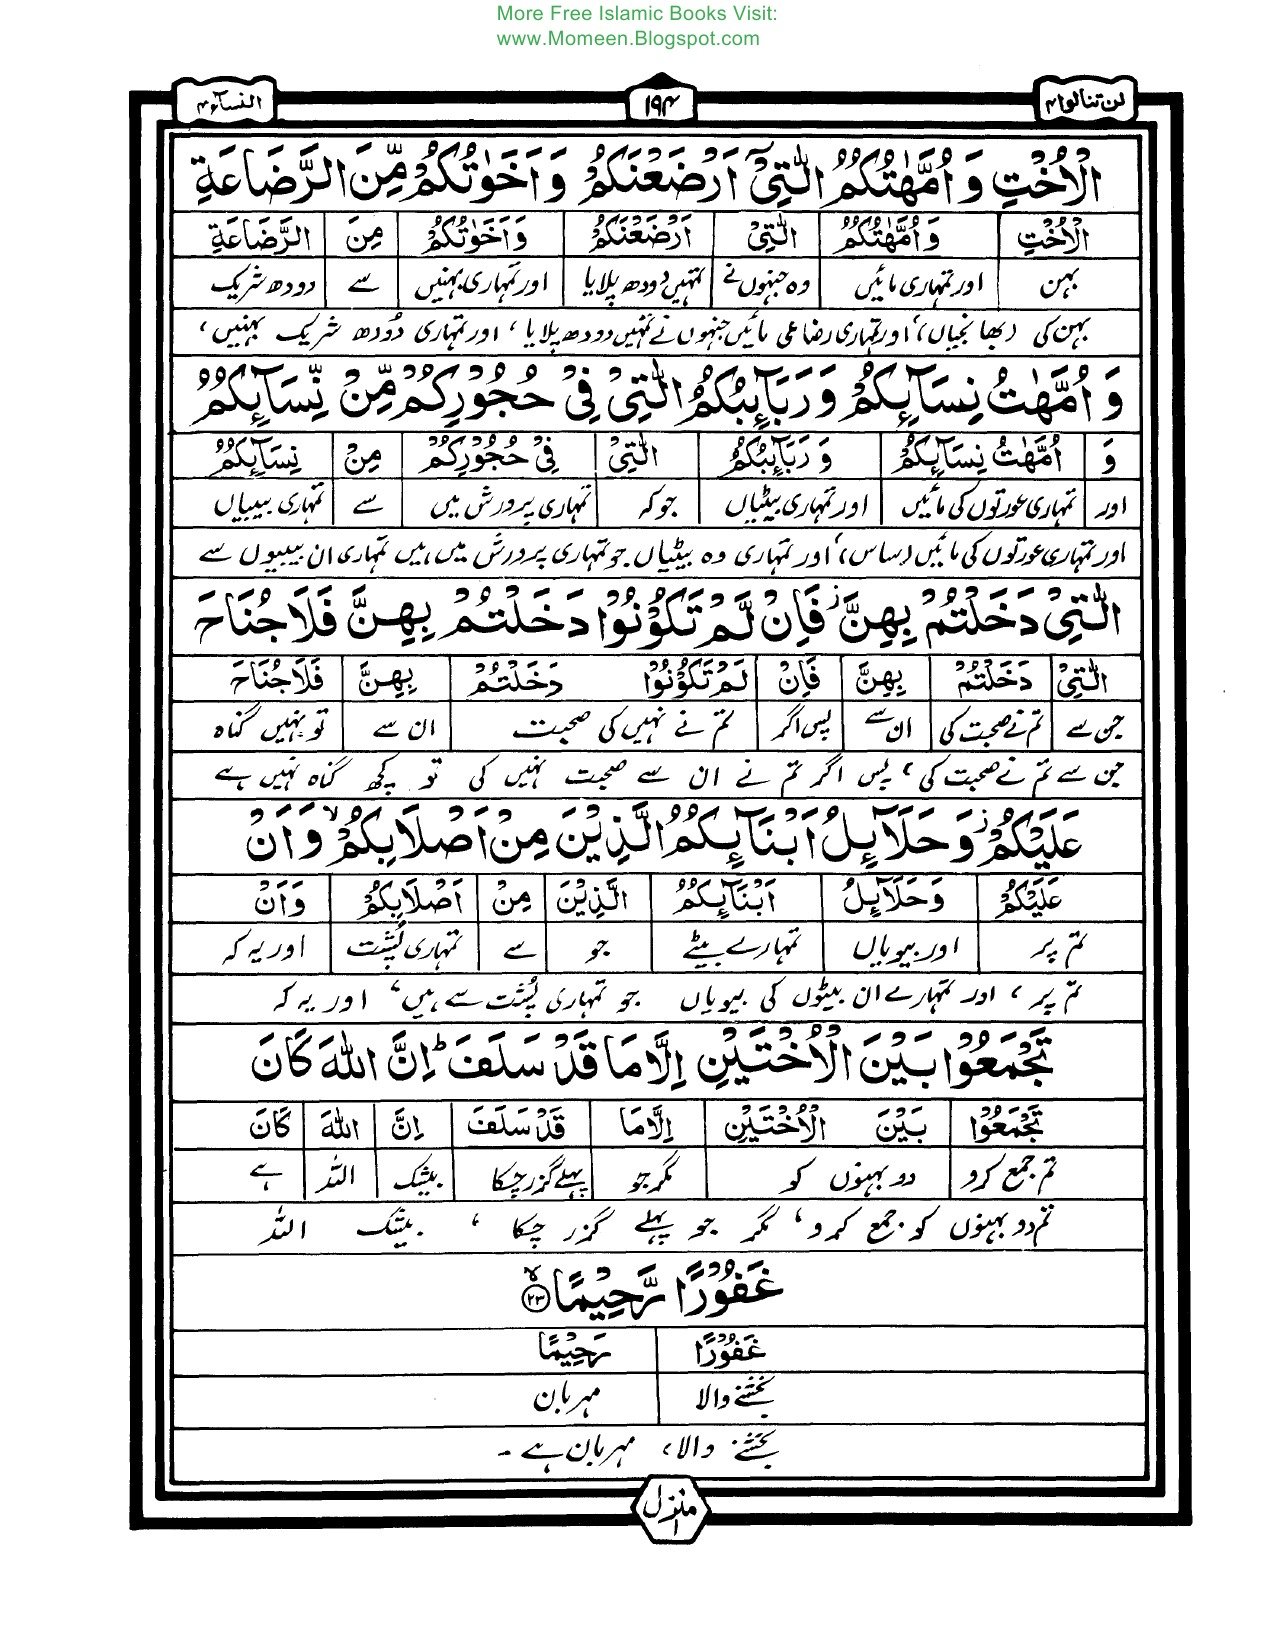 More Free Islamic Books Visit:
www.Momeen.Blogspot.com
لن تنالوا ۴ ۱۹۴ النسآء ۴
الْاُخْتِ وَ اُمَّهٰتُكُمُ الّٰتِیْۤ اَرْضَعْنَكُمْ وَ اَخَوٰتُكُمْ مِّنَ الرَّضَاعَةِ
الْاُخْتِ وَ اُمَّهٰتُكُمُ الّٰتِیْ اَرْضَعْنَكُمْ وَ اَخَوٰتُكُمْ مِنَ الرَّضَاعَةِ
بہن اور تمہاری مائیں وہ جنہوں نے تمہیں دودھ پلایا اور تمہاری بہنیں سے دودھ شریک
بہن کی (بھانجیاں)، اور تمہاری رضاعی مائیں جنہوں نے تمہیں دودھ پلایا، اور تمہاری دُودھ شریک بہنیں،
وَ اُمَّهٰتُ نِسَآئِكُمْ وَ رَبَآئِبُكُمُ الّٰتِیْ فِیْ حُجُوْرِكُمْ مِّنْ نِّسَآئِكُمُ
وَ اُمَّهٰتُ نِسَآئِكُمْ وَ رَبَآئِبُكُمُ الّٰتِیْ فِیْ حُجُوْرِكُمْ مِنْ نِسَآئِكُمُ
اور تمہاری عورتوں کی مائیں اور تمہاری بیٹیاں جو کہ تمہاری پرورش میں سے تمہاری بیبیاں
اور تمہاری عورتوں کی مائیں (ساس)، اور تمہاری وہ بیٹیاں جو تمہاری پرورش میں ہیں تمہاری ان بیبیوں سے
الّٰتِیْ دَخَلْتُمْ بِهِنَّ ز فَاِنْ لَّمْ تَكُوْنُوْا دَخَلْتُمْ بِهِنَّ فَلَا جُنَاحَ
الّٰتِیْ دَخَلْتُمْ بِهِنَّ فَاِنْ لَمْ تَكُوْنُوْا دَخَلْتُمْ بِهِنَّ فَلَا جُنَاحَ
جن سے تم نے صحبت کی ان سے پس اگر تم نے نہیں کی صحبت ان سے تو نہیں گناہ
جن سے تم نے صحبت کی، پس اگر تم نے ان سے صحبت نہیں کی تو کچھ گناہ نہیں ہے
عَلَیْكُمْ ز وَ حَلَآئِلُ اَبْنَآئِكُمُ الَّذِیْنَ مِنْ اَصْلَابِكُمْ ۙ وَ اَنْ
عَلَیْكُمْ وَ حَلَآئِلُ اَبْنَآئِكُمُ الَّذِیْنَ مِنْ اَصْلَابِكُمْ وَ اَنْ
تم پر اور بیویاں تمہارے بیٹے جو سے تمہاری پُشت اور یہ کہ
تم پر، اور تمہارے ان بیٹوں کی بیویاں جو تمہاری پُشت سے ہیں، اور یہ کہ
تَجْمَعُوْا بَیْنَ الْاُخْتَیْنِ اِلَّا مَا قَدْ سَلَفَ ؕ اِنَّ اللّٰهَ كَانَ
تَجْمَعُوْا بَیْنَ الْاُخْتَیْنِ اِلَّا مَا قَدْ سَلَفَ اِنَّ اللّٰهَ كَانَ
تم جمع کرو دو بہنوں کو مگر جو پہلے گزر چکا بیشک اللہ ہے
تم دو بہنوں کو جمع کرو، مگر جو پہلے گزر چکا، بیشک اللہ
غَفُوْرًا رَّحِیْمًا ﴿۲۳﴾ ۙ
غَفُوْرًا رَحِیْمًا
بخشنے والا مہربان
بخشنے والا، مہربان ہے ۔
منزل ۱